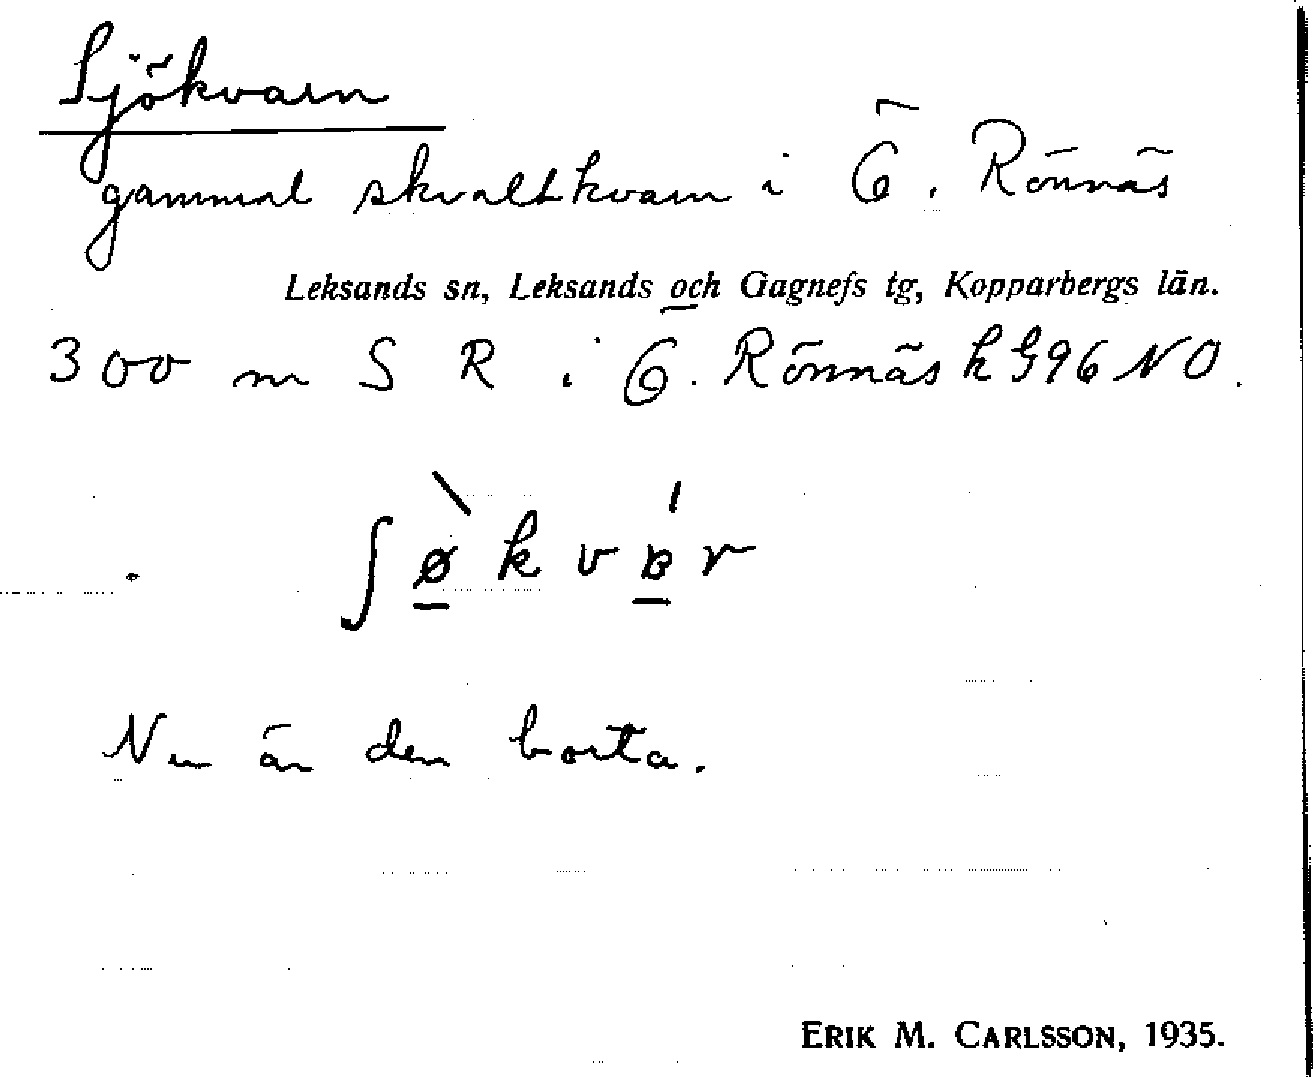 Sjökvarn
gammal skvaltkvarn i Ö. Rönnäs
Leksands sn, Leksands och Gagnefs tg, Kopparbergs län.
300 m S R i Ö. Rönnäs k G96 NO.
ʃø̀kvɒ́r
Nu är den borta.
ERIK M. CARLSSON, 1935.